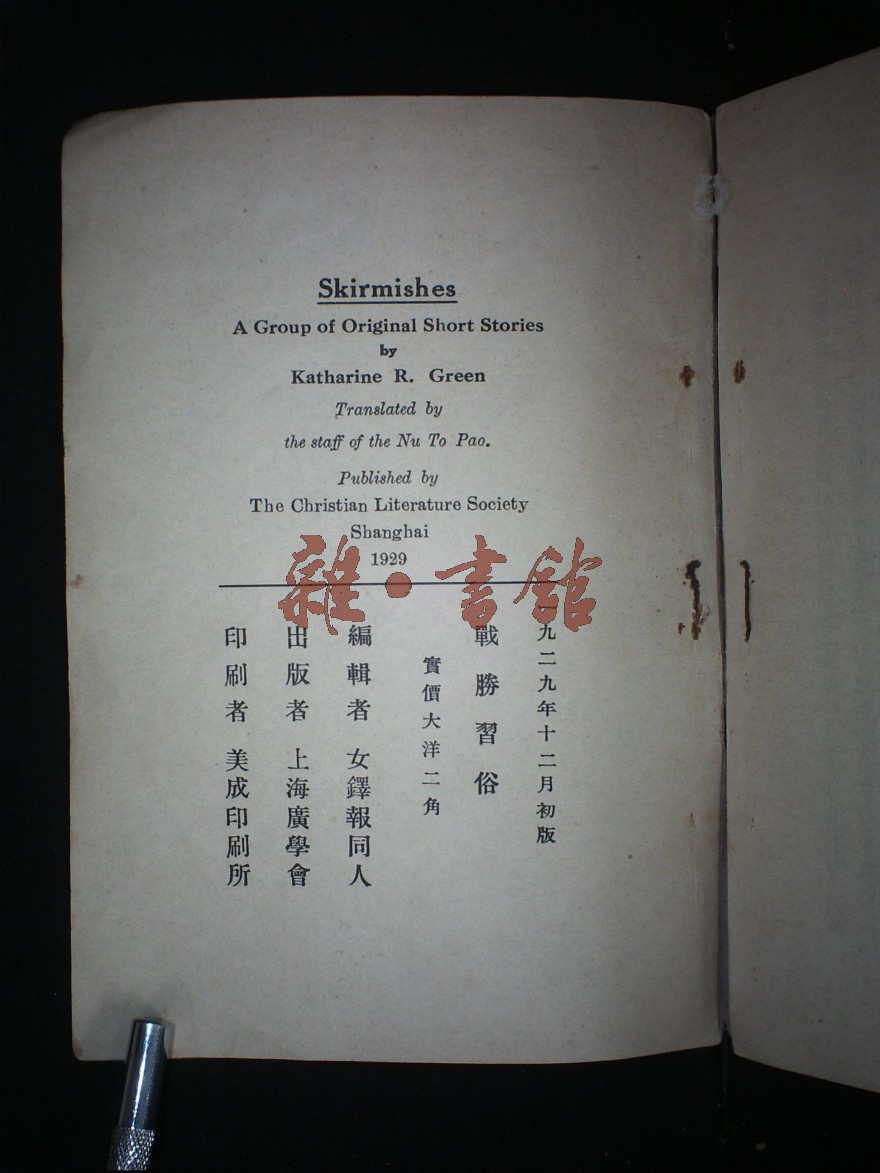 Skirmishes
A Group of Original Short Stories
by
Katharine R. Green
Translated by
the staff of the Nu To Pao.
Published by
The Christian Literature Society
Shanghai
1929
雜·書館
一九二九年十二月初版
戰勝習俗
實價大洋二角
編輯者 女鐸報同人
出版者 上海廣學會
印刷者 美成印刷所